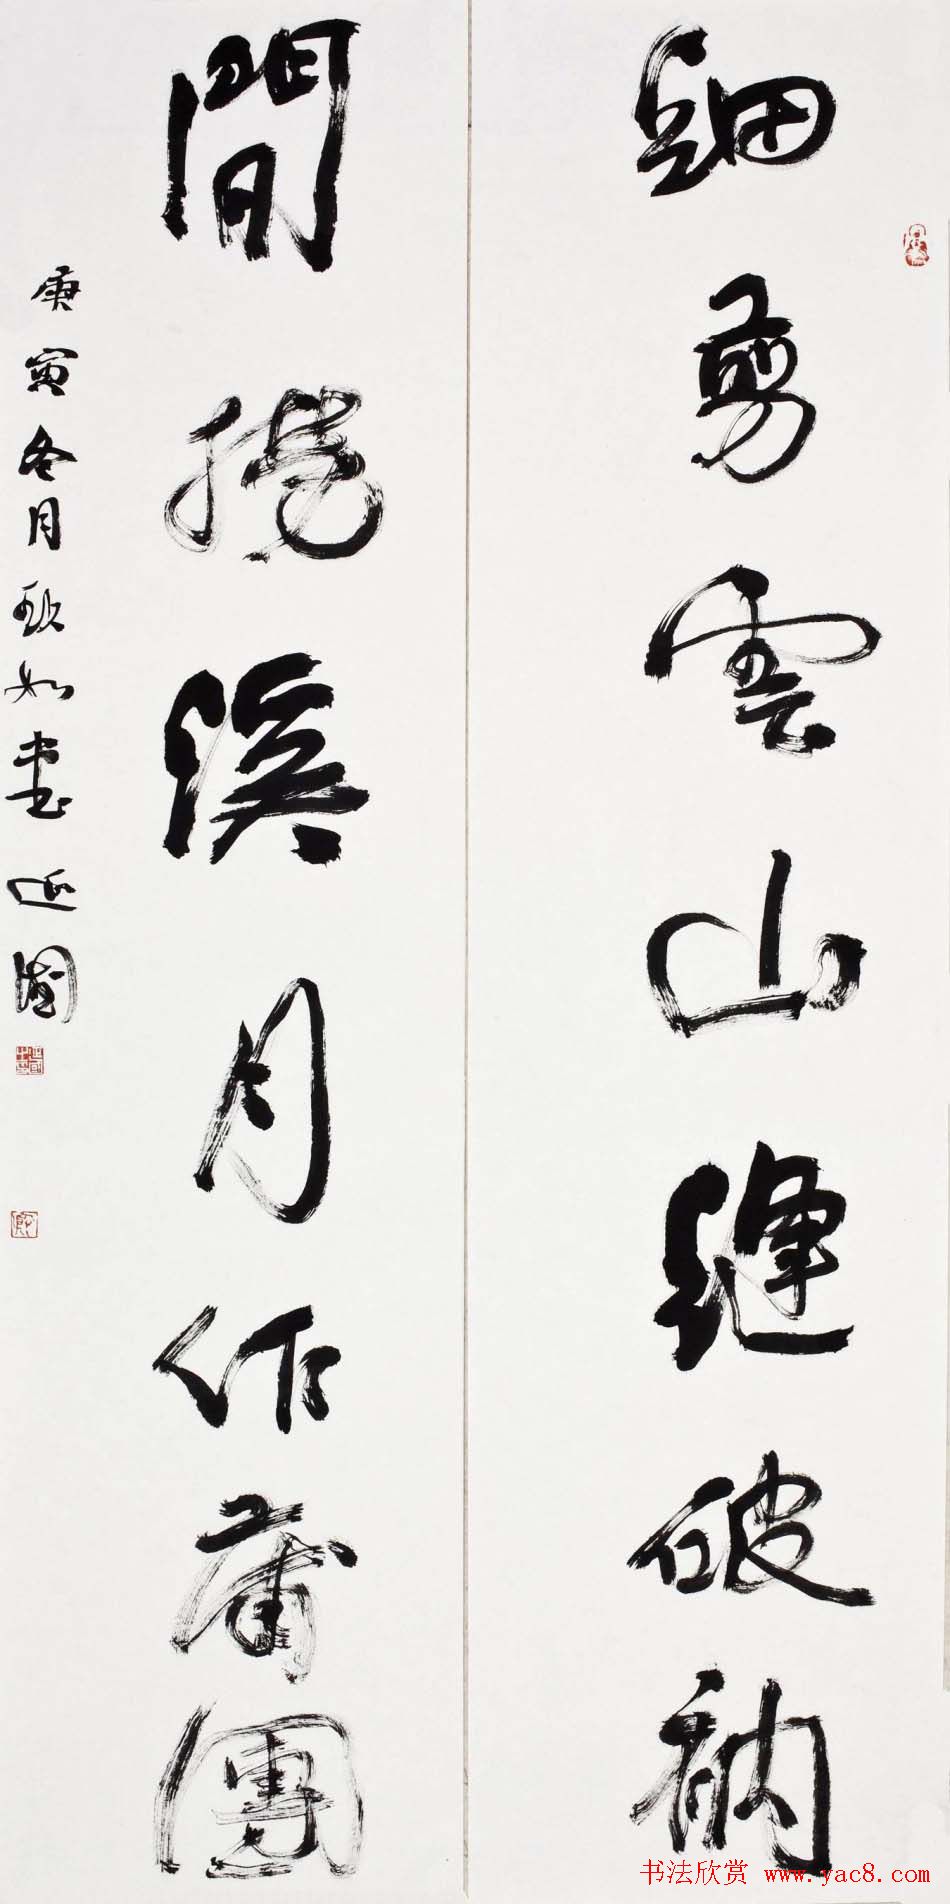 細剪雲山縫破衲
閒撈溪月作蒲團
庚寅冬月
书法欣赏 www.yac8.com